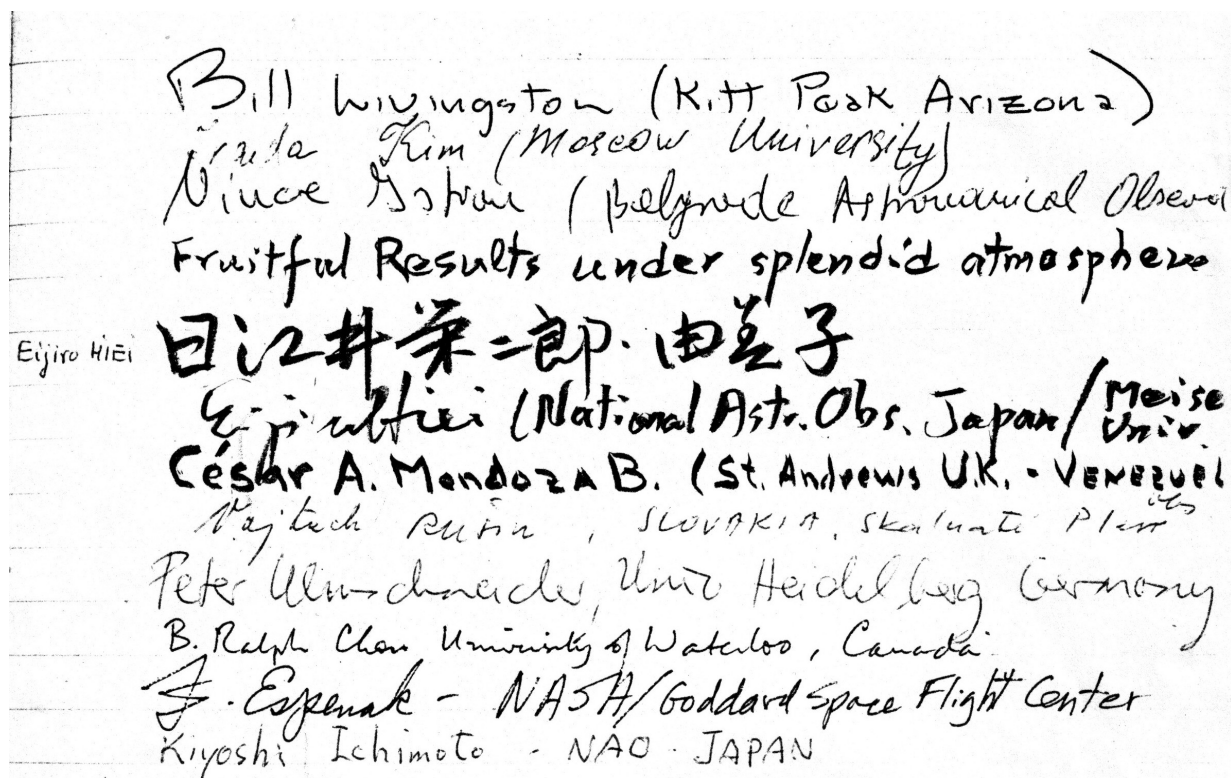 Bill Livingston (Kitt Peak Arizona)
Kim (Moscow University)
Vince (Belgrade Astronomical Observa
Fruitful Results under splendid atmosphere
Eijiro HIEI 日江井栄二郎・由美子
(National Astr. Obs. Japan/Meisei Univ.
César A. Mendoza B. (St. Andrews U.K. - VENEZUEL
Vojtech Rušin, SLOVAKIA, Skalnaté Pleso Obs
Peter Ulmschneider, Univ Heidelberg Germany
B. Ralph Chou University of Waterloo, Canada
F. Espenak - NASA/Goddard Space Flight Center
Kiyoshi Ichimoto - NAO - JAPAN